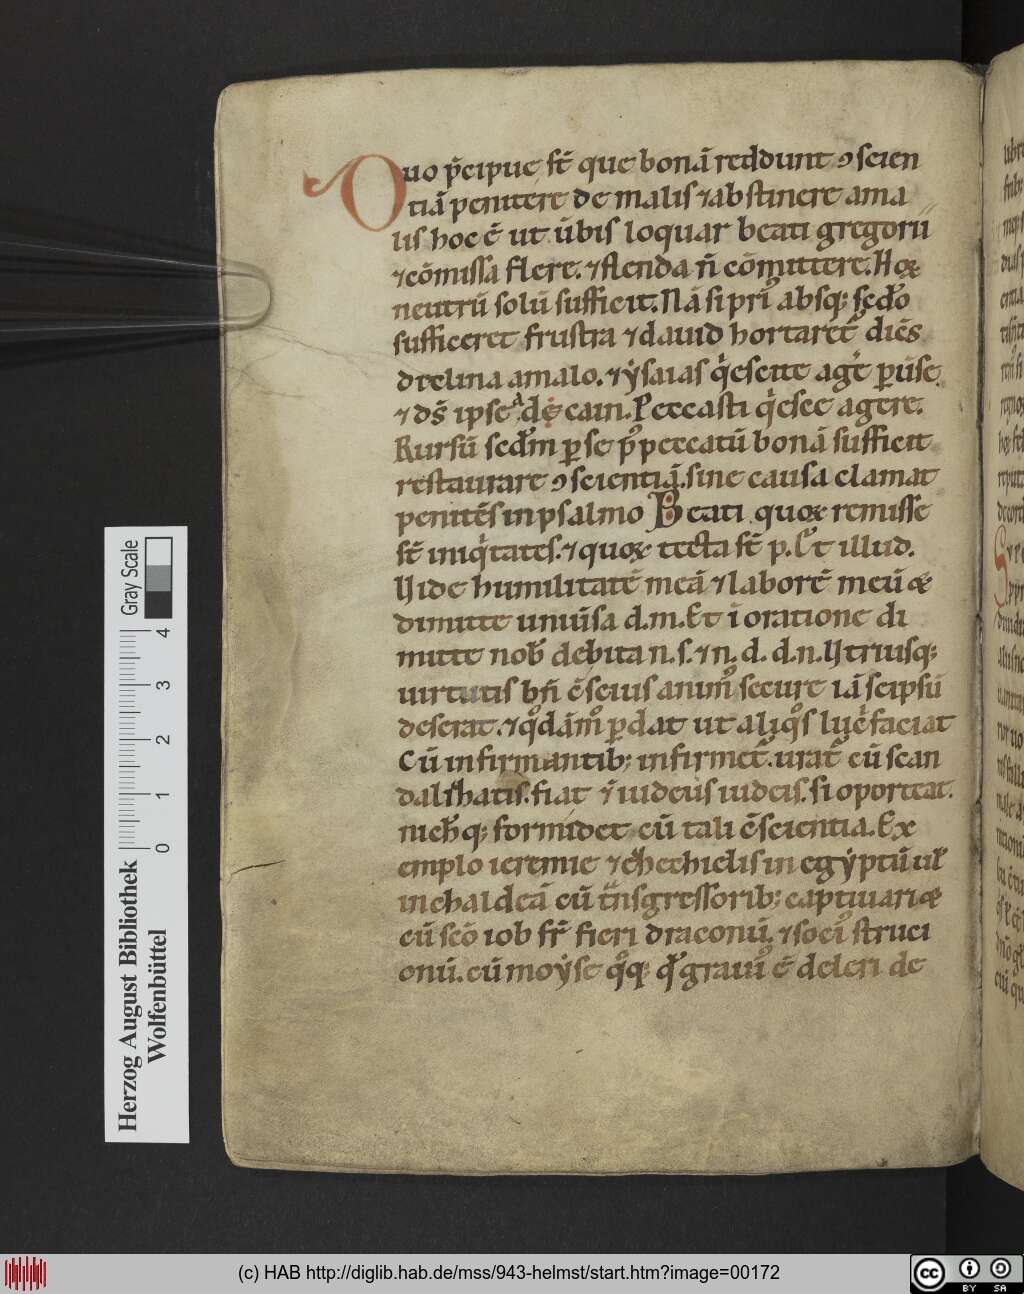 Quo p̄cipue st̄ que bonā reddunt ꝯscien
tiā penitere de malis ⁊ abstinere ama
lis hoc ē ut ūbis loquar beati gregorii
⁊ cōmissa flere. ⁊ flenda n̄ cōmittere. Hoꝝ
neutrū solū sufficit. Nā si primꝰ absq; scd̄o
sufficeret frustra ⁊ dauid hortaret᷑ dicēs
declina amalo. ⁊ ẏsaias qͥescite agͤe ꝑuse
⁊ ds̄ ipse ad cain. Peccasti qͥesce agere.
Rursū scd̄m ꝑ se p̄ peccatū bonā sufficit
restaurare ꝯscientiā. sine causa clamat
penitēs in psalmo Beati quoꝝ remisse
st̄ iniqͥtates. ⁊ quoꝝ tecta st̄ p. Et illud.
Uide humilitatē meā ⁊ laborē meū ⁊
dimitte uniūsa d. m. Et ī oratione di
mitte nob̄ debita n. s. ⁊ n. d. d. n. Utriusq;
uirtutis bn̄ ꝯscius animꝰ secure iā seipsū
deserat. ⁊ qͦdāmͦ ꝑdat ut aliqͦs lucͥfaciat
Cū infirmantib; infirmet᷑. urat᷑ cū scan
dalizatis. fiat ⁊ iudeus iudeis. si oporteat.
nich̄ q; formidet cū tali ꝯscientia. Ex
emplo ieremie ⁊ ezechielis in egẏptū ul̄
in chaldeā cū tͣnsgressorib; captiuari ⁊
cū scō iob fr̄ fieri draconū. ⁊ sociꝰ struci
onū. cū moẏse qͦq; qd̄ grauiꝰ ē deleri de
Herzog August Bibliothek
Wolfenbüttel
Gray Scale
0 1 2 3 4
(c) HAB http://diglib.hab.de/mss/943-helmst/start.htm?image=00172
cc BY SA